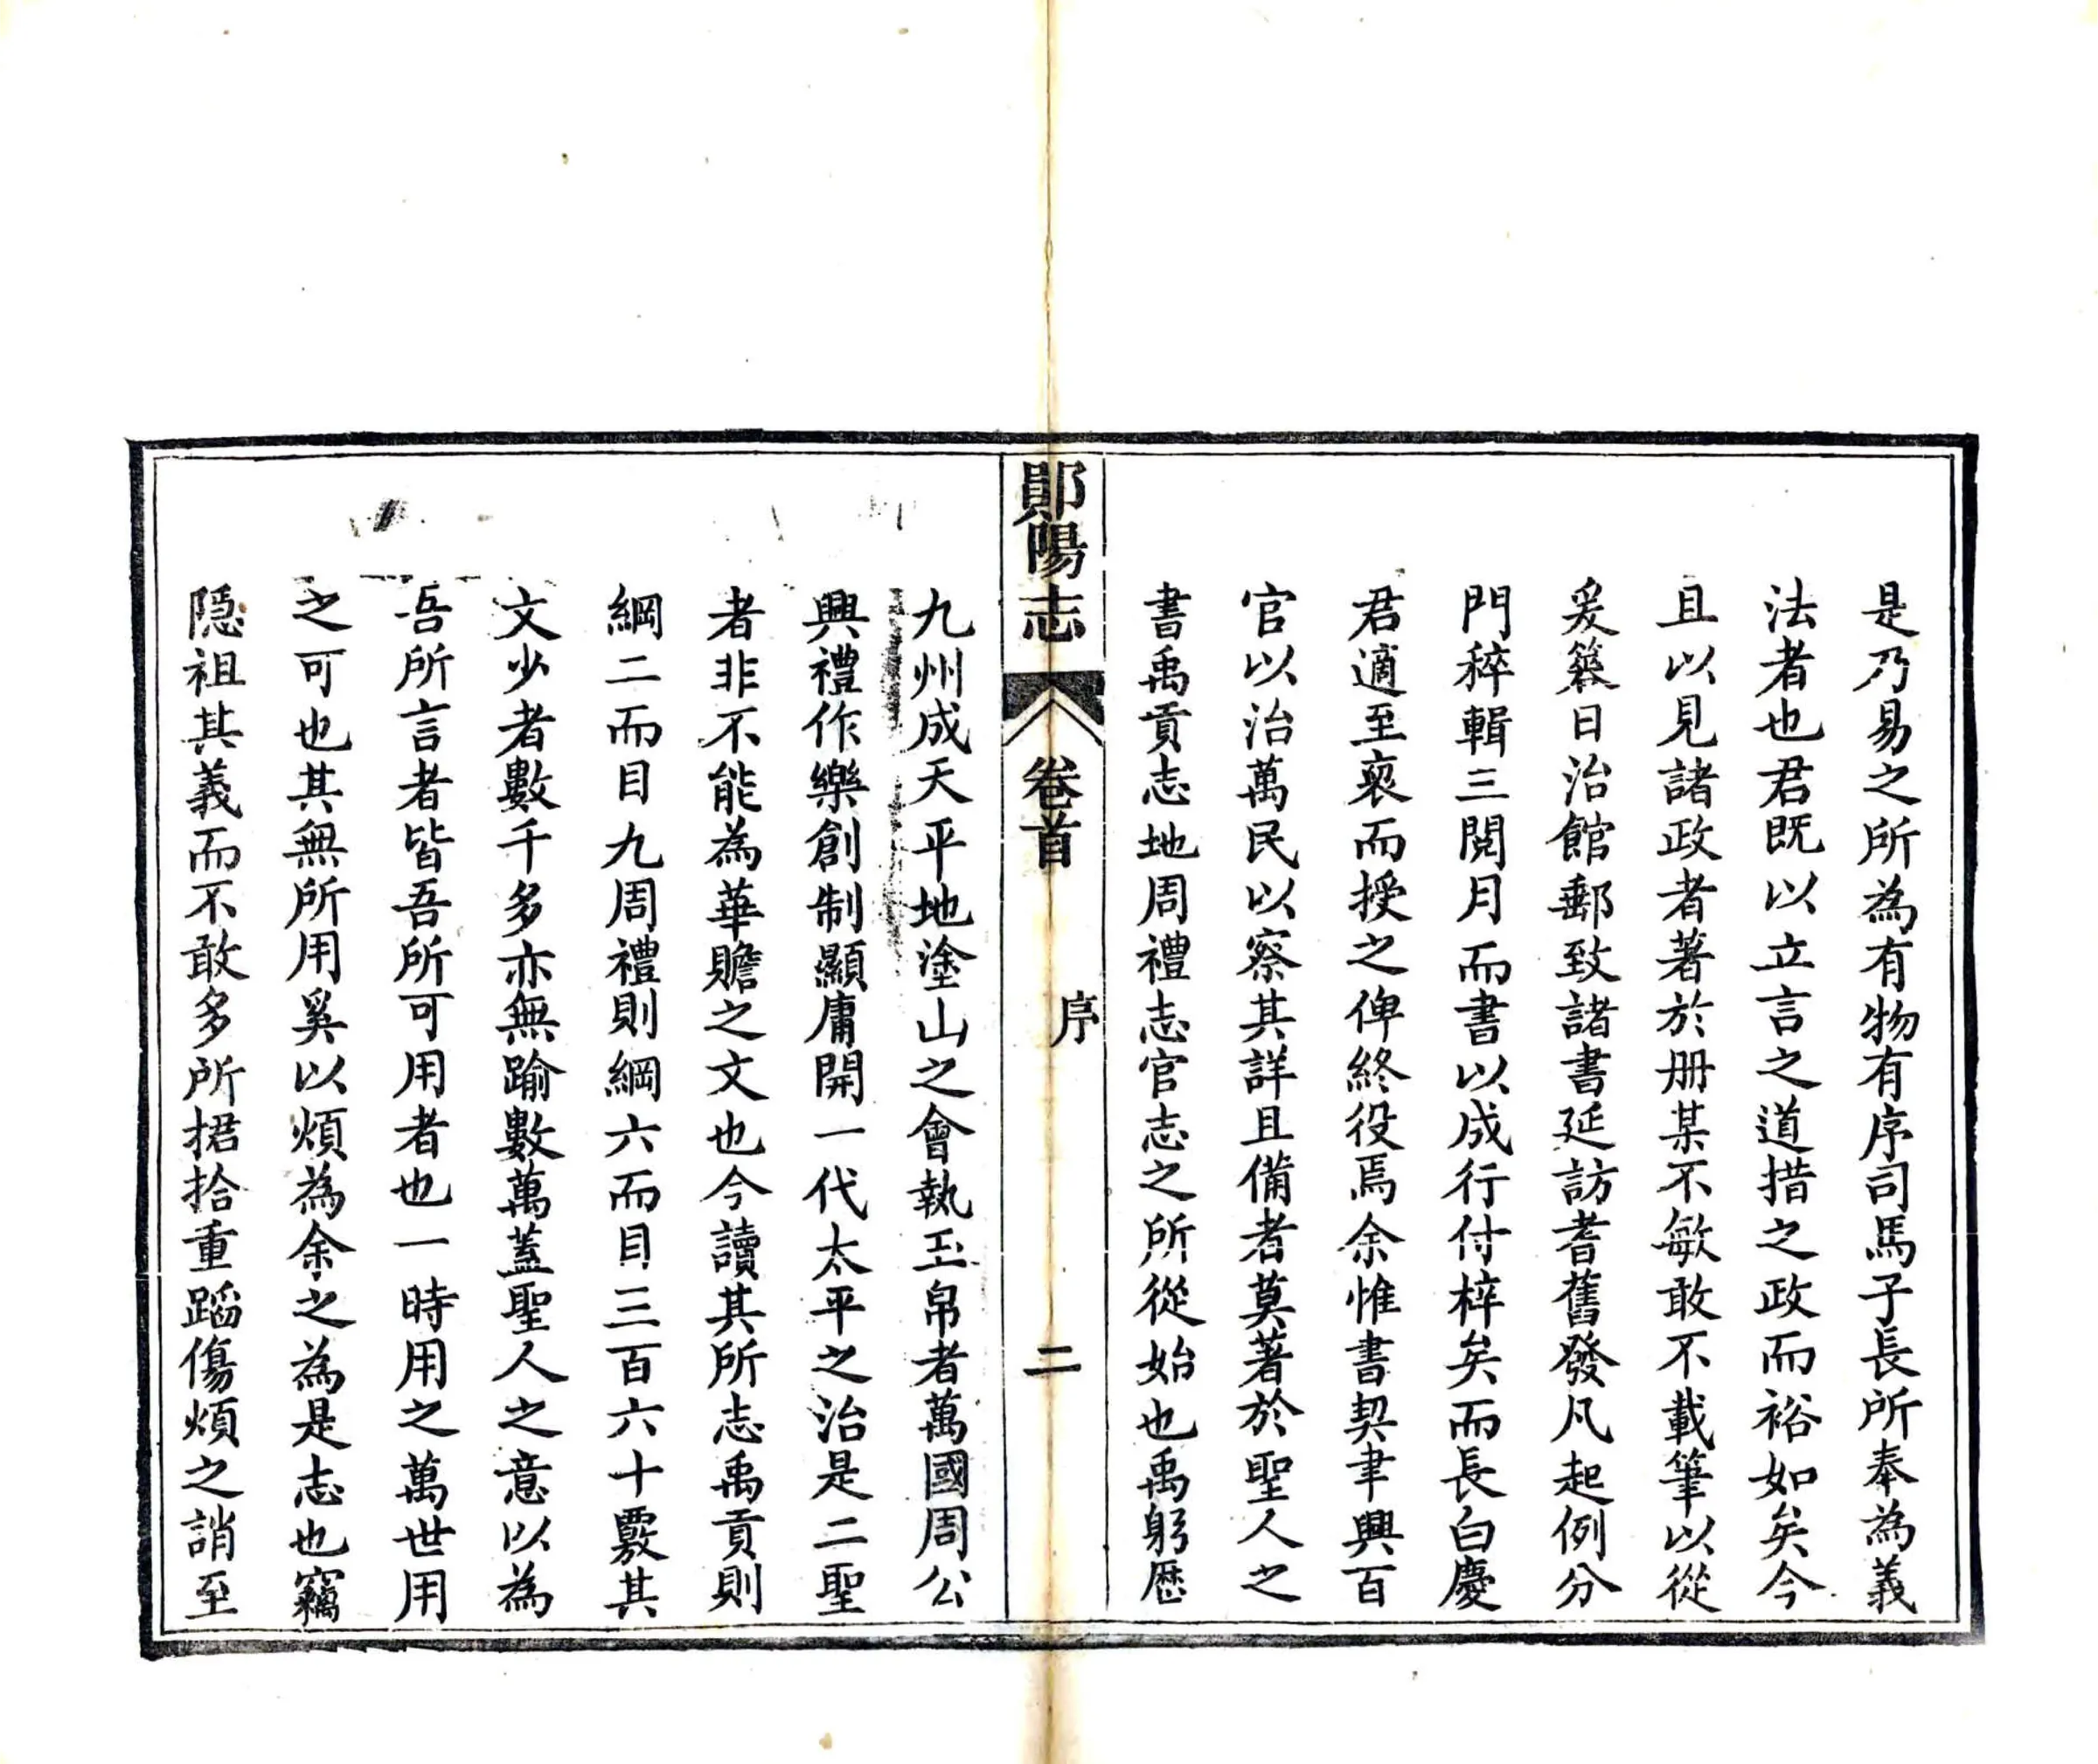 是乃易之所為有物有序司馬子長所奉為義
法者也君既以立言之道措之政而裕如矣今
且以見諸政者著於册某不敏敢不載筆以從
爰簭日治館郵致諸書延訪耆舊發凡起例分
門稡輯三閱月而書以成行付梓矣而長白慶
君適至裒而授之俾終役焉余惟書契聿興百
官以治萬民以察其詳且備者莫著於聖人之
書禹貢志地周禮志官志之所從始也禹躬歷
鄖陽志 卷首 序 二
九州成天平地塗山之會執玉帛者萬國周公
興禮作樂創制顯庸開一代太平之治是二聖
者非不能為華贍之文也今讀其所志禹貢則
綱二而目九周禮則綱六而目三百六十覈其
文少者數千多亦無踰數萬蓋聖人之意以為
吾所言者皆吾所可用者也一時用之萬世用
之可也其無所用奚以煩為余之為是志也竊
隱祖其義而不敢多所捃拾重蹈傷煩之誚至